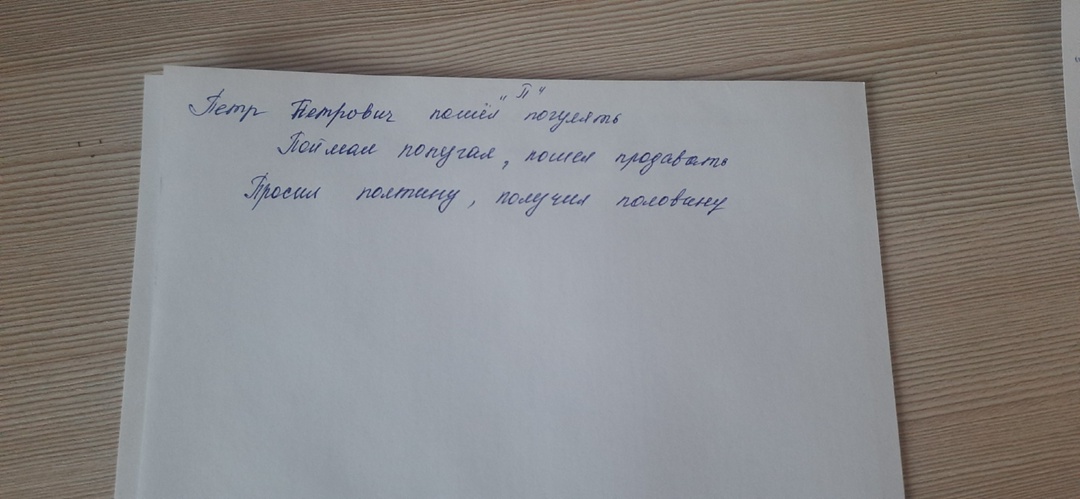 "П"
Петр Петрович пошёл погулять
Поймал попугая, пошел продавать
Просил полтину, получил половину